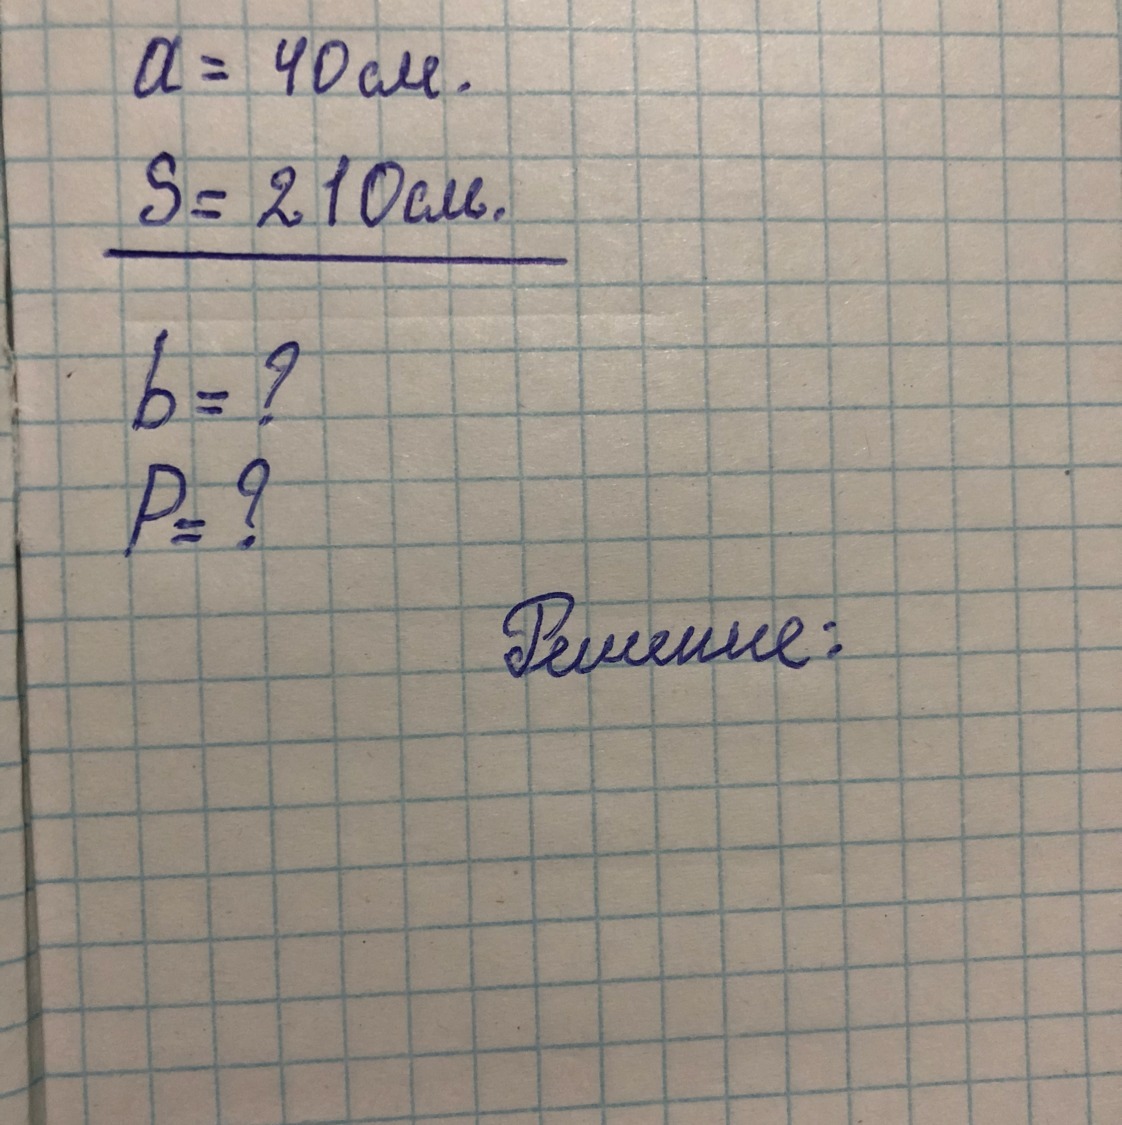 a = 40 см.
S = 210 см.
b = ?
P = ?
Решение: